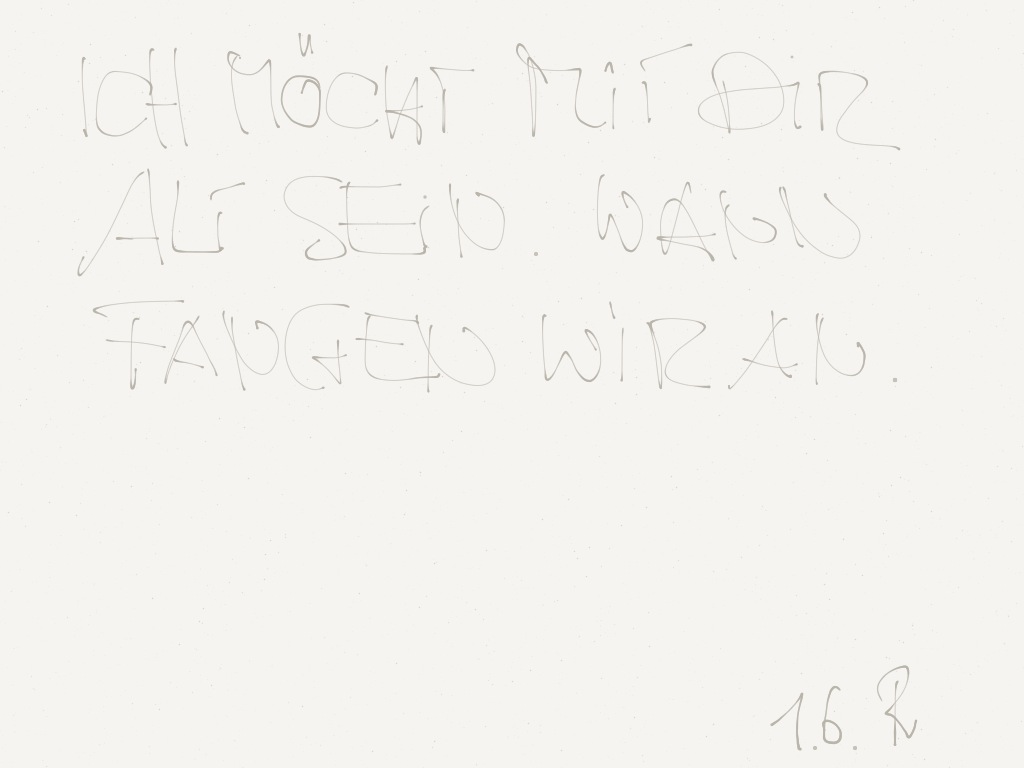 ICH MÖCHT MIT DIR
ALT SEIN. WANN
FANGEN WIR AN.
1.6. R